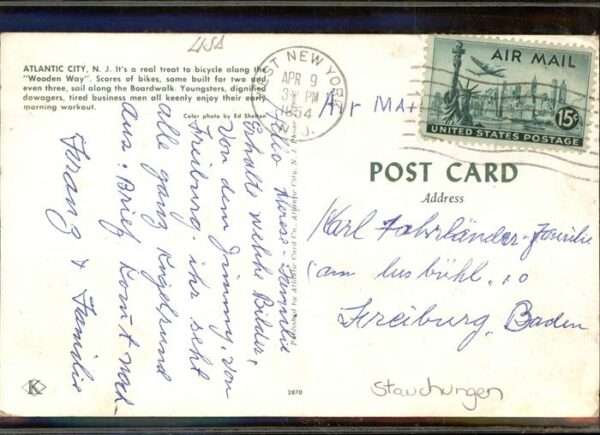 USA
ATLANTIC CITY, N. J. It's a real treat to bicycle along the
"Wooden Way". Scores of bikes, some built for two and
even three, sail along the Boardwalk. Youngsters, dignified
dowagers, tired business men all keenly enjoy their early
morning workout.
Color photo by Ed
WEST NEW YORK
APR 9
PM
1954
N. J.
AIR MAIL
15¢
UNITED STATES POSTAGE
Air Mail
POST CARD
Address
Karl Fahrländer-Familie
am 10
Freiburg, Baden
Familie
Erhalte Bilder,
Von dem Jimmy, von
Freiburg. ihr seht
alle ganz Kugelrund
aus. Brief Komt nach
Franz & Familie
K
2870
Stauchungen